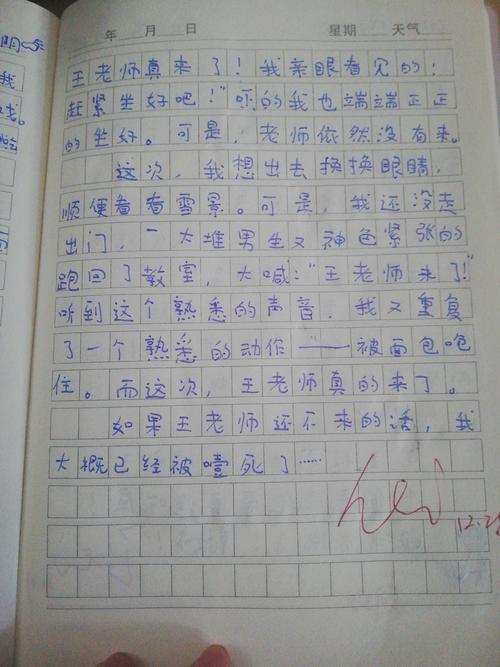 年 月 日 星期 天气
阴
王老师真来了！我亲眼看见的；
赶紧坐好吧！"吓的我也端端正正
的坐好。可是，老师依然没有来。
这次，我想出去换换眼睛，
顺便看看雪景。可是，我还没走
出门，一大堆男生又神色紧张的
跑回了教室，大喊："王老师来了！"
听到这个熟悉的声音，我又重复
了一个熟悉的动作——被面包噎
住。而这次，王老师真的来了。
如果王老师还不来的话，我
大概已经被噎死了……
12.2